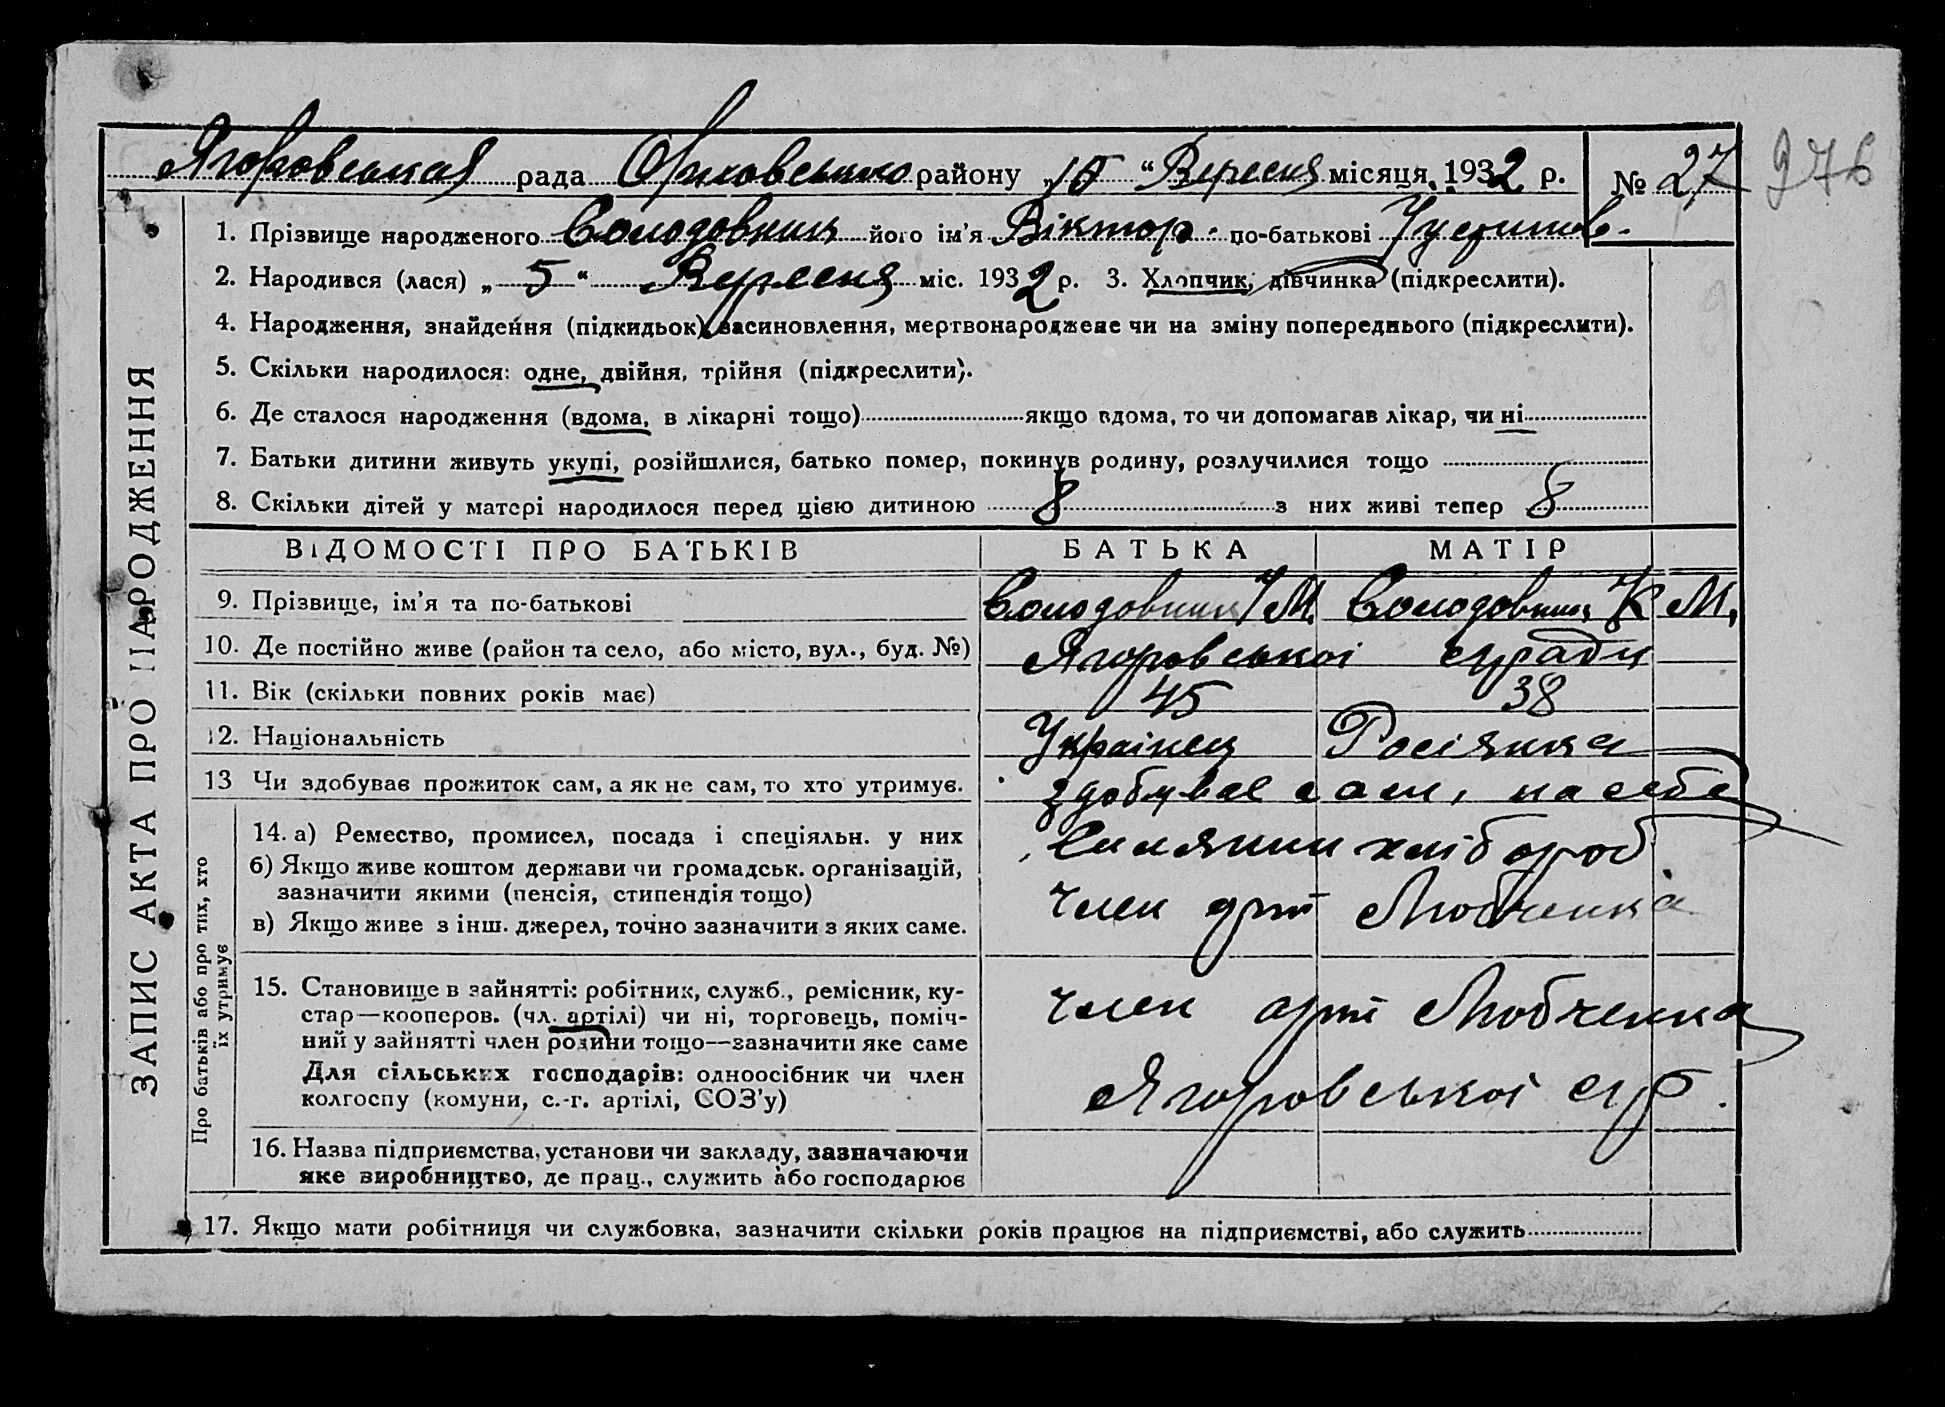 Ягоровська рада Оріховського району „15“ Вересня місяця 1932 р. № 27 276
1. Прізвище народженого Солодовник його ім’я Віктор по-батькові Устимов.
2. Народився (лася) „5“ Вересня міс. 1932 р. 3. Хлопчик, дівчинка (підкреслити).
4. Народження, знайдення (підкидьок), засиновлення, мертвонароджене чи на зміну попереднього (підкреслити).
5. Скільки народилося: одне, двійня, трійня (підкреслити).
6. Де сталося народження (вдома, в лікарні тощо) якщо вдома, то чи допомагав лікар, чи ні
7. Батьки дитини живуть укупі, розійшлися, батько помер, покинув родину, розлучилися тощо
8. Скільки дітей у матері народилося перед цією дитиною 8 з них живі тепер 8
ЗАПИС АКТА ПРО НАРОДЖЕННЯ
ВІДОМОСТІ ПРО БАТЬКІВ БАТЬКА МАТІР
9. Прізвище, ім’я та по-батькові Солодовник У М. Солодовник К М.
10. Де постійно живе (район та село, або місто, вул., буд. №) Ягоровської с/ради
11. Вік (скільки повних років має) 45 38
12. Національність Українец Росіянка
13 Чи здобуває прожиток сам, а як не сам, то хто утримує. здобуває сам, на себе
Про батьків або про тих, хто
їх утримує
14. а) Ремество, промисел, посада і спеціяльн. у них Силянин хлібороб
б) Якщо живе коштом держави чи громадськ. організацій,
зазначити якими (пенсія, стипендія тощо) член арт Любченка
в) Якщо живе з інш. джерел, точно зазначити з яких саме.
15. Становище в зайнятті: робітник, служб., ремісник, ку-
стар—кооперов. (чл. артілі) чи ні, торговець, поміч- член арті Любченка
ний у зайнятті член родини тощо—зазначити яке саме
Для сільських господарів: одноосібник чи член
колгоспу (комуни, с.-г. артілі, СОЗ’у) Ягоровської с/р.
16. Назва підприємства, установи чи закладу, зазначаючи
яке виробництво, де прац., служить або господарює
17. Якщо мати робітниця чи службовка, зазначити скільки років працює на підприємстві, або служить